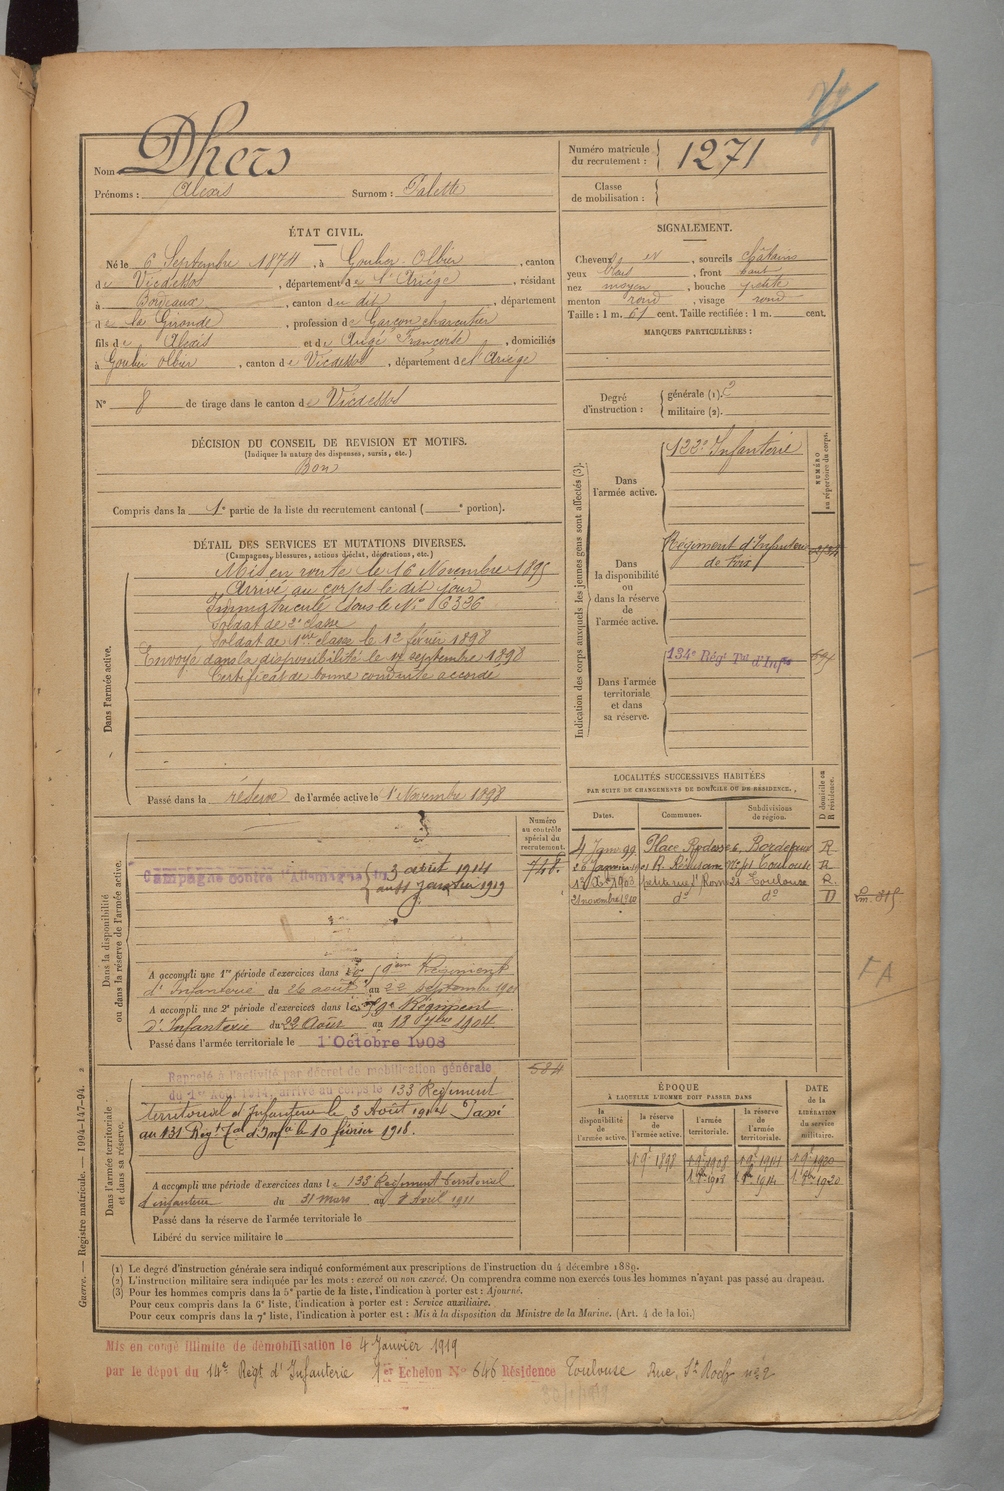 Nom Dhers
Prénoms : Alexis Surnom : Palette
Numéro matricule du recrutement : 1271
Classe de mobilisation :
ÉTAT CIVIL.
Né le 6 Septembre 1874, à Goulier-Olbier, canton
de Vicdessos, département de l'Ariège, résidant
à Bordeaux, canton du dit, département
de la Gironde, profession de Garçon charcutier
fils de Alexis et de Augé Françoise, domiciliés
à Goulier Olbier, canton de Vicdessos, département de l'Ariège
N° 8 de tirage dans le canton de Vicdessos
SIGNALEMENT.
Cheveux et, sourcils châtains
yeux bleus, front haut
nez moyen, bouche petite
menton rond, visage rond
Taille : 1 m. 61 cent. Taille rectifiée : 1 m. cent.
MARQUES PARTICULIÈRES :
Degré d'instruction : générale (1). 3
militaire (2).
DÉCISION DU CONSEIL DE REVISION ET MOTIFS.
(Indiquer la nature des dispenses, sursis, etc.)
Bon
Compris dans la 1e partie de la liste du recrutement cantonal ( e portion).
DÉTAIL DES SERVICES ET MUTATIONS DIVERSES.
(Campagnes, blessures, actions d'éclat, décorations, etc.)
Dans l'armée active.
Mis en route le 16 Novembre 1895
Arrivé au corps le dit jour
Immatriculé sous le N°
Soldat de 2e classe
Soldat de 1ère classe le 12 février 1898
Envoyé dans la disponibilité le septembre 1898
Certificat de bonne conduite accordé
Passé dans la réserve de l'armée active le 1 Novembre 1898
Indication des corps auxquels les jeunes gens sont affectés (3).
NUMÉRO au répertoire du corps.
Dans l'armée active.
133e Infanterie
Dans la disponibilité ou dans la réserve de l'armée active.
Régiment d'Infanterie
de Foix
Dans l'armée territoriale et dans sa réserve.
134e Régt Tal d'Infie
LOCALITÉS SUCCESSIVES HABITÉES
PAR SUITE DE CHANGEMENTS DE DOMICILE OU DE RÉSIDENCE.
Dates. Communes. Subdivisions de région. D domicile ou R résidence.
4 Janv 99 Place Rodesse 6, Bordeaux R
Toulouse R
1903 Toulouse R.
21 novembre 1910 do do D
FA
Dans la disponibilité ou dans la réserve de l'armée active.
Numéro au contrôle spécial du recrutement.
748.
Campagne contre l'Allemagne du 3 août 1914
au Janvier 1919
A accompli une 1re période d'exercices dans le Régiment
d'Infanterie du 26 août au 22 septembre
A accompli une 2e période d'exercices dans le 59e Régiment
d'Infanterie du 22 Août au 18 7bre 1904
Passé dans l'armée territoriale le 1er Octobre 1908
Dans l'armée territoriale et dans sa réserve.
584
Rappelé à l'activité par décret de mobilisation générale
du 1er Août 1914, arrivé au corps le 133 Régiment
territorial d'Infanterie le 3 Août 1914 Passé
au 131 Regt Tal d'Infie le 10 février 1918.
A accompli une période d'exercices dans le 133 Régiment Territorial
d'infanterie du 31 mars au 8 Avril 1911
Passé dans la réserve de l'armée territoriale le
Libéré du service militaire le
ÉPOQUE
À LAQUELLE L'HOMME DOIT PASSER DANS
la disponibilité de l'armée active.
la réserve de l'armée active.
l'armée territoriale.
la réserve de l'armée territoriale.
DATE de la LIBÉRATION du service militaire.
1 9e 1898 1 9e 1908 1 9e 1914 1 9e 1920
1er 8bre 1908 1er 8bre 1914 1er 8bre 1920
(1) Le degré d'instruction générale sera indiqué conformément aux prescriptions de l'instruction du 4 décembre 1889.
(2) L'instruction militaire sera indiquée par les mots : exercé ou non exercé. On comprendra comme non exercés tous les hommes n'ayant pas passé au drapeau.
(3) Pour les hommes compris dans la 5e partie de la liste, l'indication à porter est : Ajourné.
Pour ceux compris dans la 6e liste, l'indication à porter est : Service auxiliaire.
Pour ceux compris dans la 7e liste, l'indication à porter est : Mis à la disposition du Ministre de la Marine. (Art. 4 de la loi.)
Guerre. — Registre matricule. — 1994-47-94.
Mis en congé illimité de démobilisation le 4 Janvier 1919
par le dépôt du 14e Régt d'Infanterie 1er Echelon N° 646 Résidence Toulouse Rue St Roch n° 2